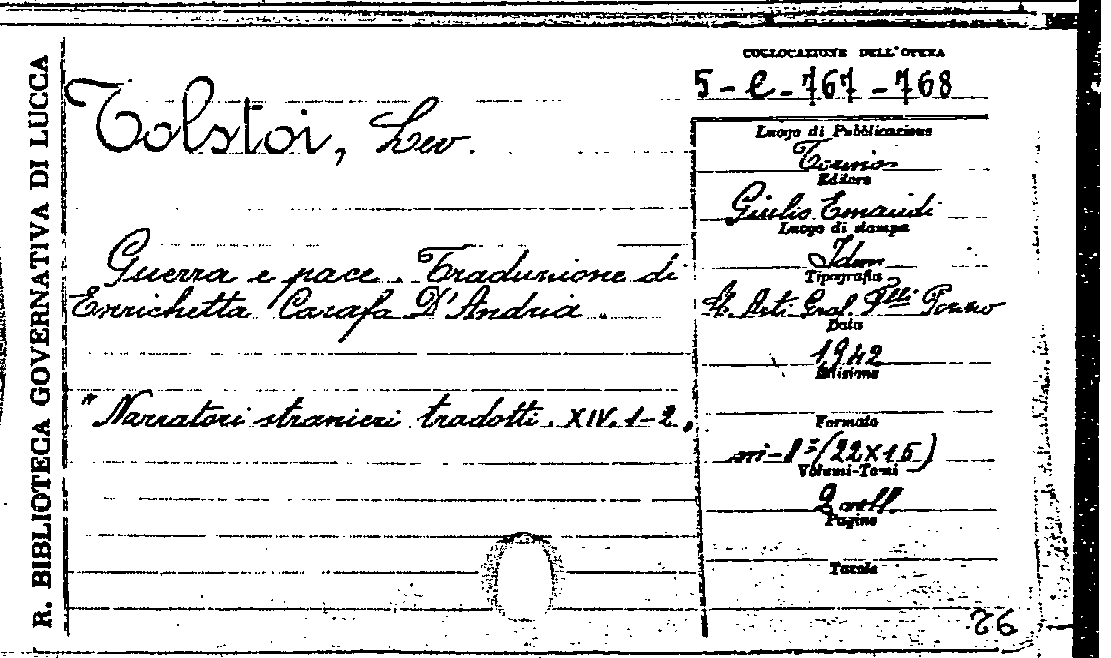 R. BIBLIOTECA GOVERNATIVA DI LUCCA
Tolstoi, Lev.
Guerra e pace. Traduzione di
Enrichetta Carafa D'Andria.
"Narratori stranieri tradotti. XIV. 1-2"
COLLOCAZIONE DELL'OPERA
5-e-767-768
Luogo di Pubblicazione
Torino
Editore
Giulio Einaudi
Luogo di stampa
Idem
Tipografia
Arti Graf. Flli Pozzo
Data
1942
Edizione
Formato
in-8° (22x15)
Volumi-Tomi
2 voll.
Pagine
Tavole
26